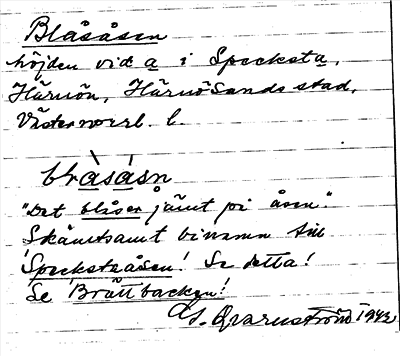 Blåsåsen
höjden vid a i Specksta,
Härnön, Härnösands stad,
Västernorrl. l.
blàsásn
"Det blåser jämt på åsen".
Skämtsamt binamn till
'Speckstaåsen'! Se detta!
Se 'Brattbacken'!
1942